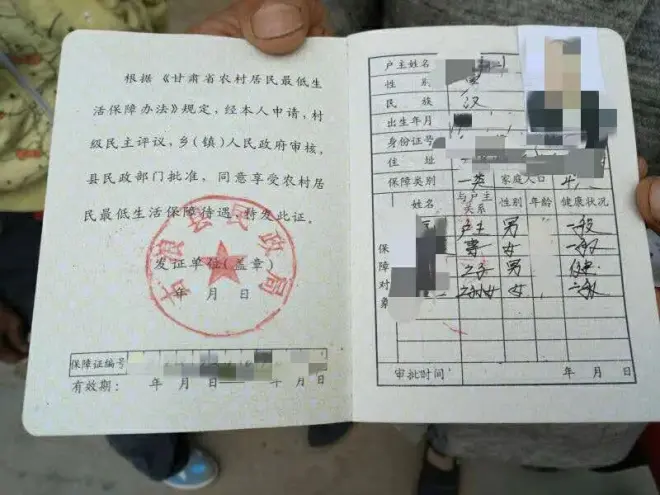 根据《甘肃省农村居民最低生
活保障办法》规定，经本人申请，村
级民主评议，乡（镇）人民政府审核，
县民政部门批准，同意享受农村居
民最低生活保障待遇，特发此证。
县民政局
发证单位（盖章）
年 月 日
保障证编号
有效期： 年 月 日 年 月 日
户主姓名
性 别 男
民 族 汉
出生年月
身份证号
住 址
保障类别 类 家庭人口
保障对象 姓名 与户主关系 性别 年龄 健康状况
户主 男 一般
妻 女 一般
男
女
审批时间 年 月 日